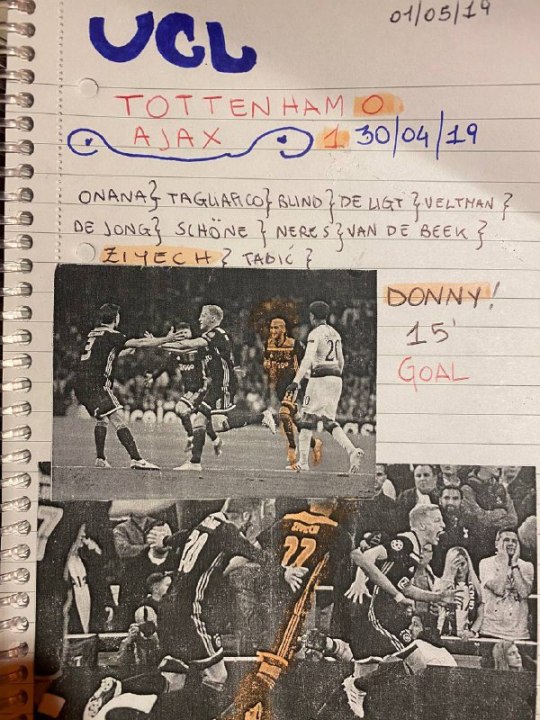 01/05/19
UCL
TOTTENHAM 0
AJAX 1 30/04/19
ONANA} TAGLIAFICO} BLIND} DE LIGT} VELTMAN}
DE JONG} SCHÖNE} NERES} VAN DE BEEK}
ZIYECH} TADIĆ}
DONNY!
15'
GOAL
3
20
20
ZIYECH
22